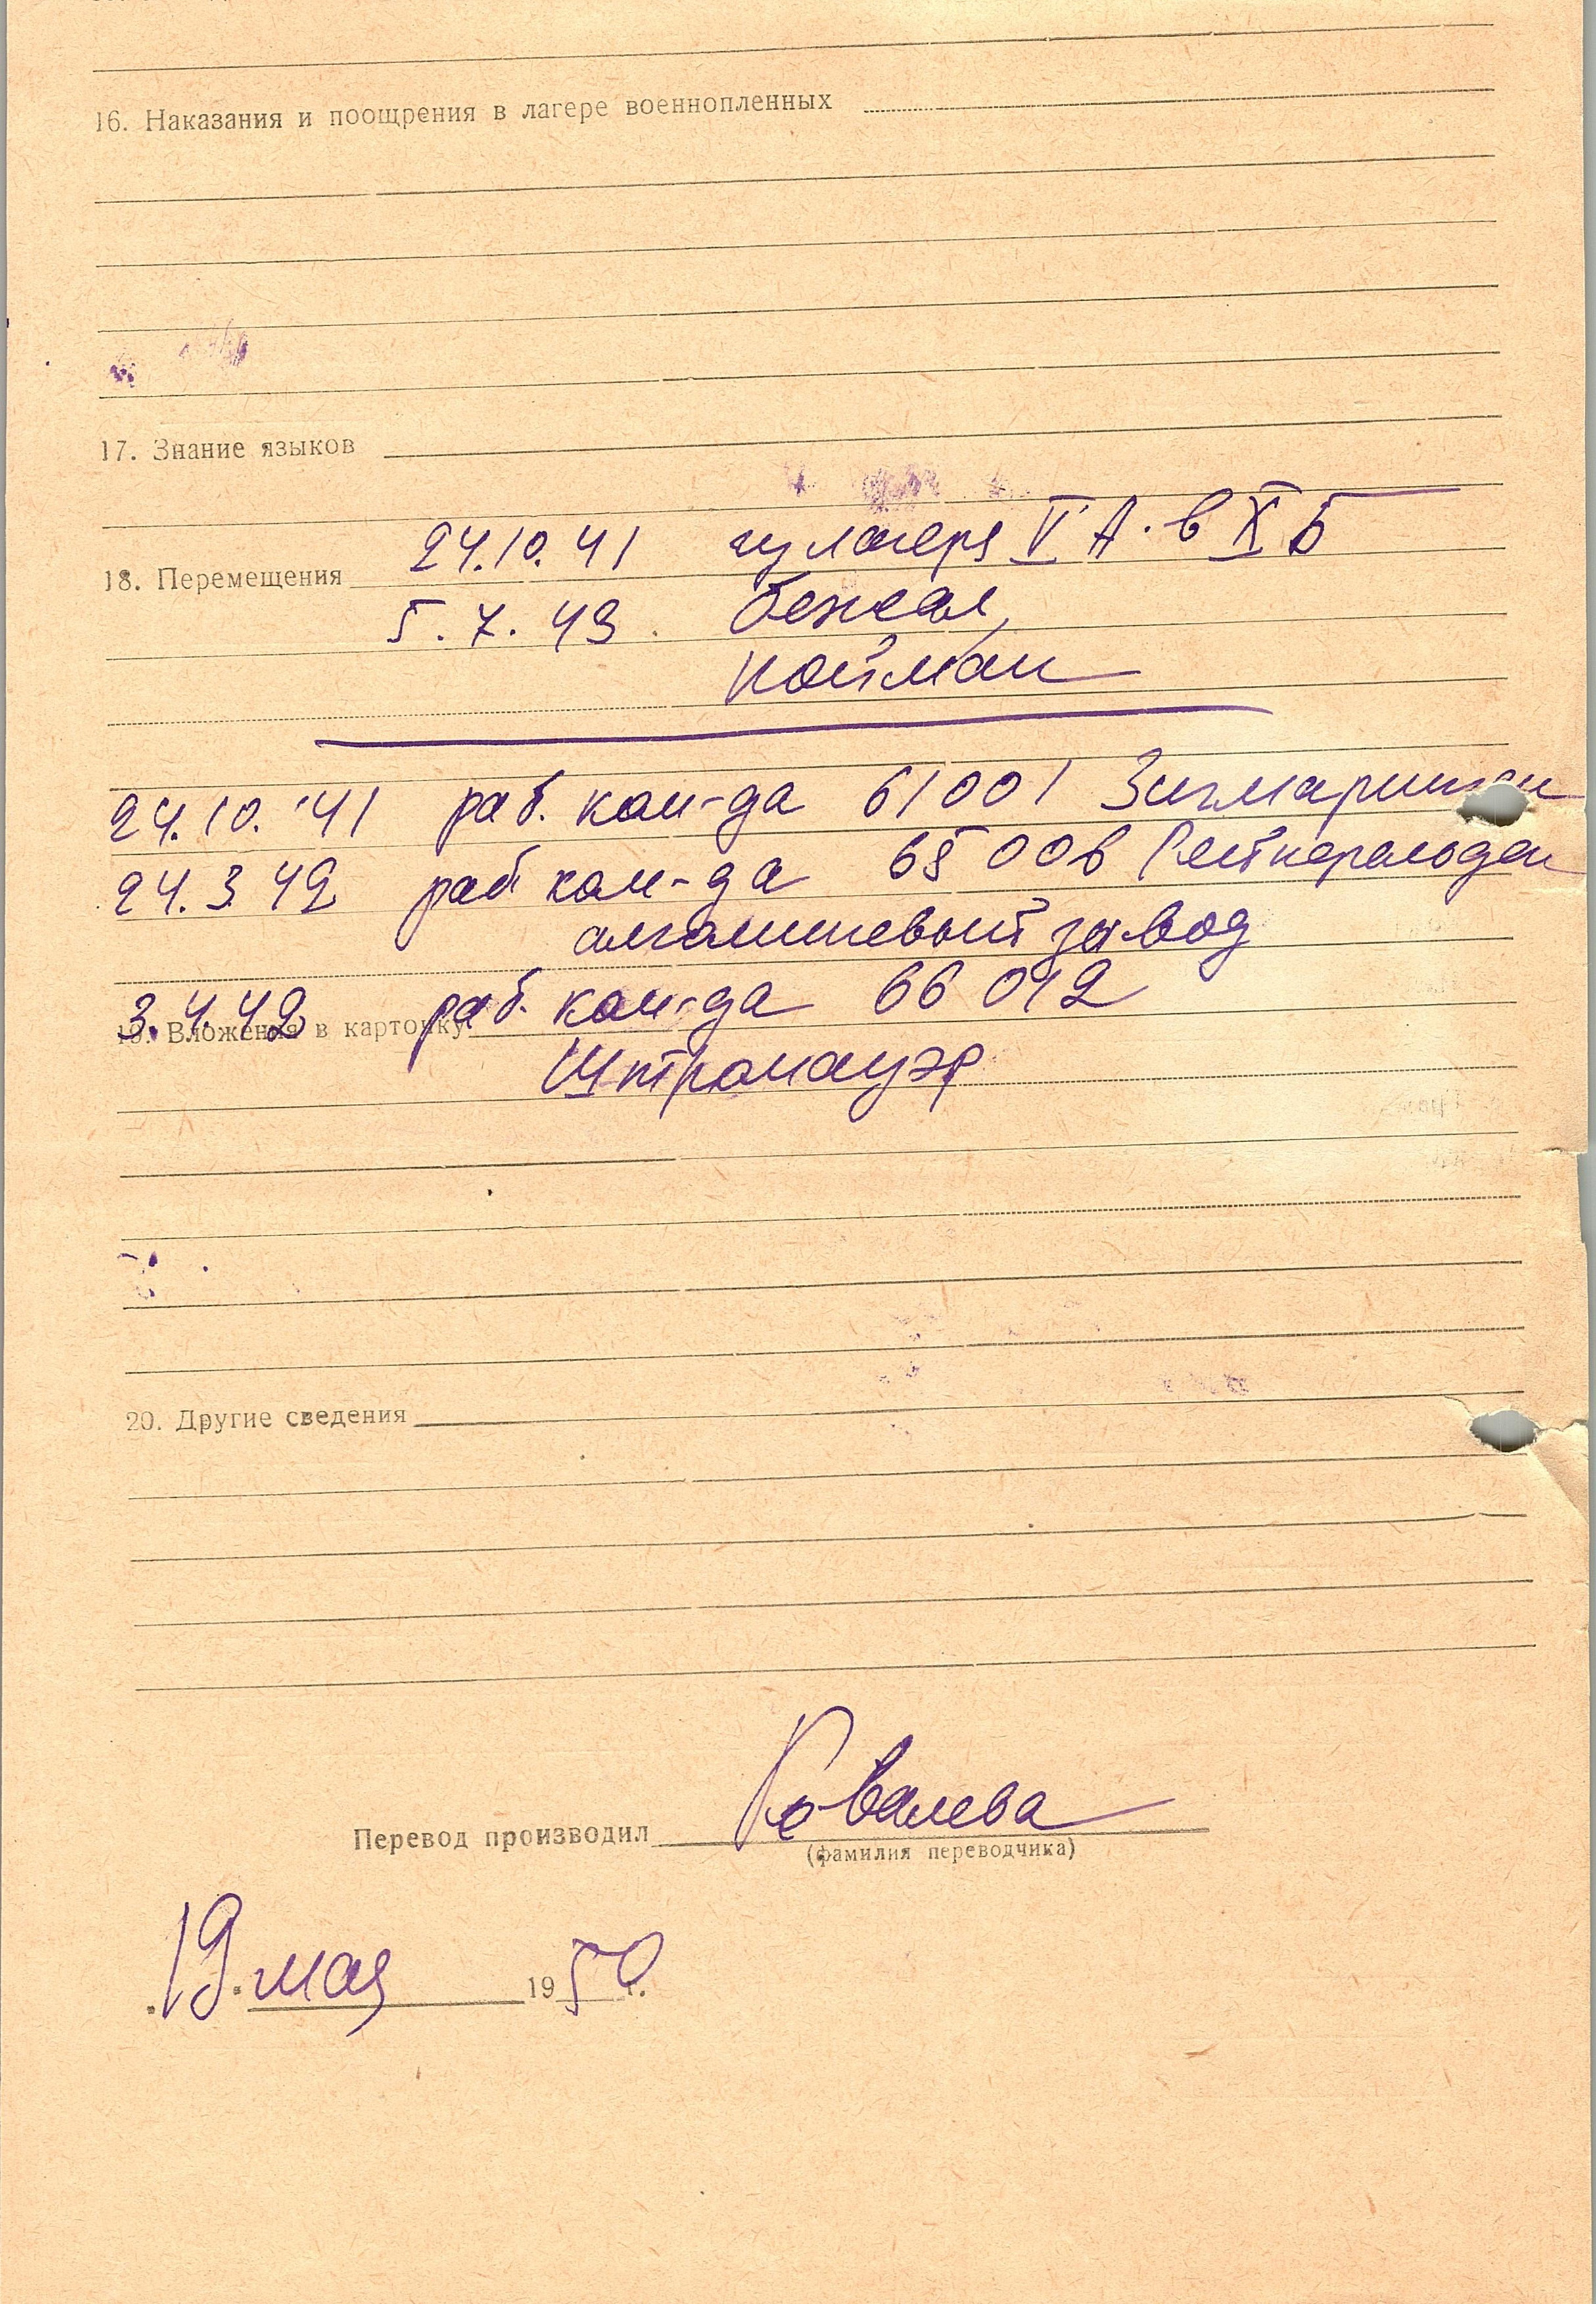 16. Наказания и поощрения в лагере военнопленных
17. Знание языков
24.10.41 из лагеря V А. в X Б
18. Перемещения
5.7.43. бежал,
пойман
24.10.41 раб. ком-да 61001
24.3.42 раб ком-да 65006
алюминиевый завод
3.4.42 раб. ком-да 66012
19. Вложения в карточку
Штромауэр
20. Другие сведения
Перевод производил Ковалева
(фамилия переводчика)
19 мая 1950 г.